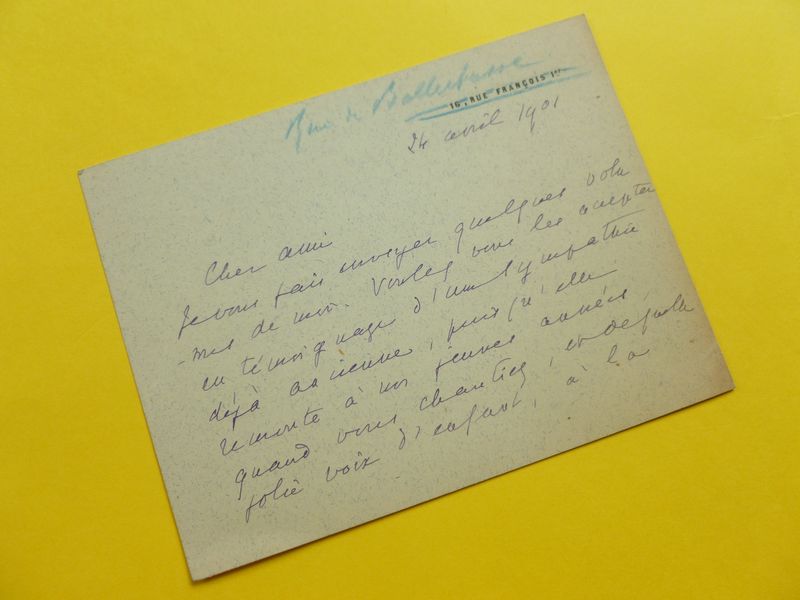 16, RUE FRANÇOIS 1er
24 avril 1901
Cher ami
Je vous fais envoyer quelques volu
-mes de moi. Voulez vous les accepter
en témoignage d'une sympathie
déjà ancienne, puisqu'elle
remonte à nos jeunes années,
quand vous chantiez, votre
jolie voix d'enfant, à la